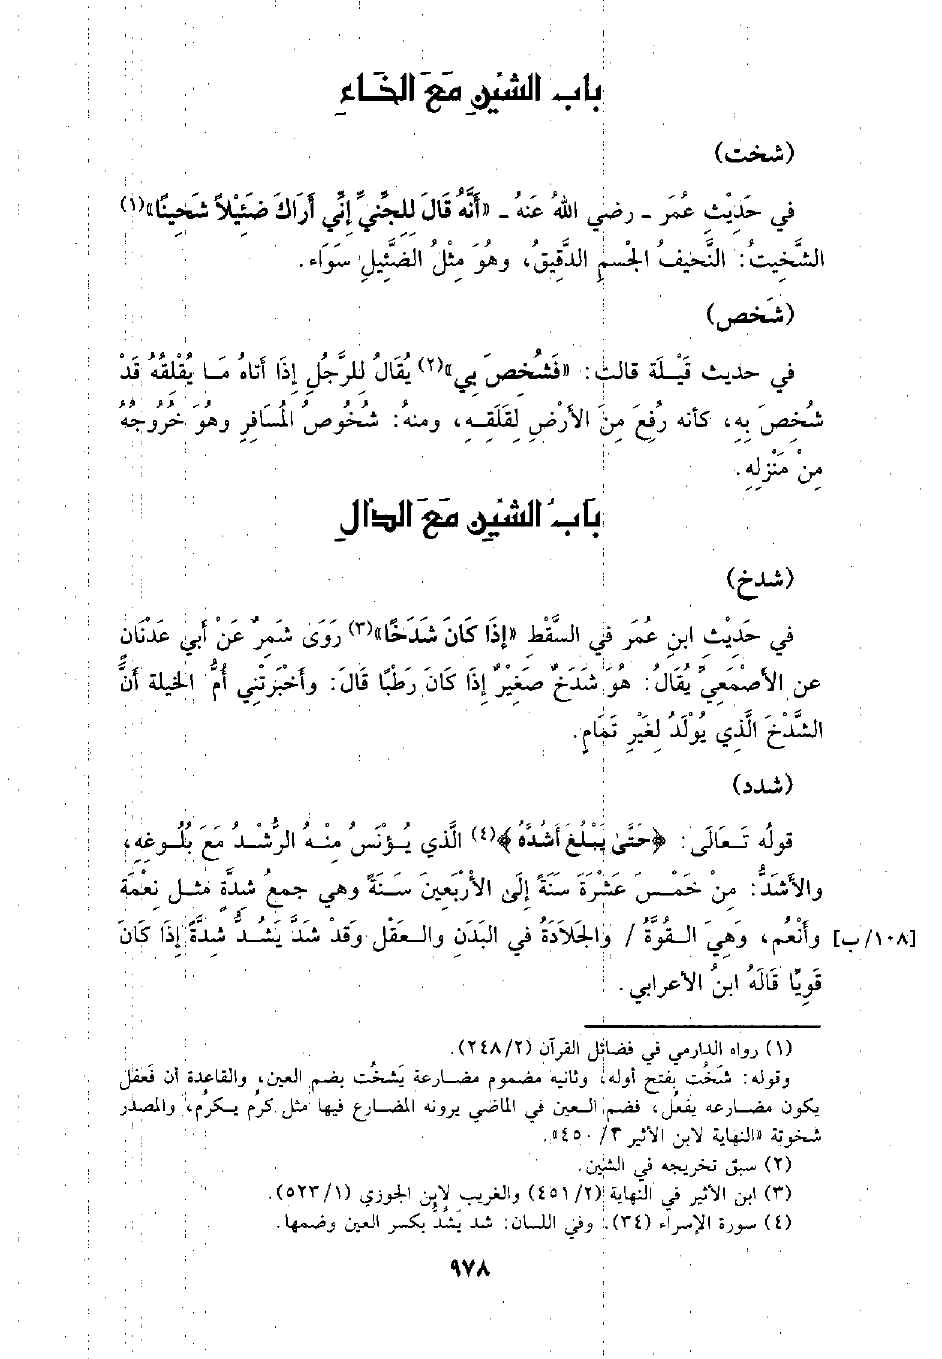 بابُ الشِّيْنِ مَعَ الخَاءِ
(شخت)
في حَدِيْثِ عُمَرَ - رضي اللهُ عَنهُ - «أَنَّهُ قَالَ لِلجِنِّيِّ إِنِّي أَرَاكَ ضَئِيْلاً شَخِيتًا»(١)
الشَّخِيتُ: النَّحيفُ الجْسمِ الدَّقيقُ، وهُوَ مِثْلُ الضَّئيلِ سَوَاء.
(شَخص)
في حديث قَيْلَة قالت: «فَشُخِصَ بِي»(٢) يُقَالُ للرَّجُلِ إِذَا أَتاهُ مَا يُقْلِقُهُ قَدْ
شُخِصَ بِهِ، كأنه رُفِعَ مِنَ الأَرْضِ لِقَلَقِهِ، ومنهُ: شُخُوصُ المُسَافِرِ وهُوَ خُرُوجُهُ
مِنْ مَنْزِلِهِ.
بَابُ الشيْنِ مَعَ الدّالِ
(شدخ)
في حَدِيْثِ ابنِ عُمَرَ في السَّقْطِ «إِذَا كَانَ شَدَخًا»(٣) رَوَى شَمِرٌ عَنْ أَبي عَدْنَانَ
عن الأَصْمَعيِّ يُقَالُ: هُوَ شَدَخٌ صَغِيْرٌ إِذَا كَانَ رَطْبًا قَالَ: وأَخْبَرَتْني أُمُّ الخيلة أنَّ
الشَّدْخَ الَّذي يُوْلَدُ لِغَيْرِ تَمَامٍ.
(شدد)
قولُه تَعَالَى: ﴿حَتَّىٰ يَبْلُغَ أَشُدَّهُ﴾(٤) الَّذي يُؤْنَسُ مِنْهُ الرُّشْدُ مَعَ بُلُوغِهِ،
والأَشدُّ: مِنْ خَمْسَ عَشْرَةَ سَنَةً إِلَى الأَرْبَعينَ سَنَةً وهي جمعُ شدَّةٍ مثل نِعْمَة
[١٠٨/ب] وأَنْعُم، وَهِيَ القُوَّةُ / والجَلادَةُ في البَدَن والعَقْل وقَدْ شَدَّ يَشُدُّ شدَّةً إِذَا كَانَ
قَويًا قَالَهُ ابنُ الأعرابي.
(١) رواه الدارمي في فضائل القرآن (٢٤٨/٢).
وقوله: شَخُت بفتح أوله، وثانيه مضموم مضارعة يَشخُت بضم العين، والقاعدة أن فَعُل
يكون مضارعه يفعُل، فضم العين في الماضي يرونه المضارع فيها مثل كرُم يكرُم، والمصدر
شخوتة «النهاية لابن الأثير ٣/ ٤٥٠».
(٢) سبق تخريجه في الشين.
(٣) ابن الأثير في النهاية (٤٥١/٢) والغريب لابن الجوزي (٥٢٣/١).
(٤) سورة الإسراء (٣٤). وفي اللسان: شد يشد بكسر العين وضمها.
٩٧٨